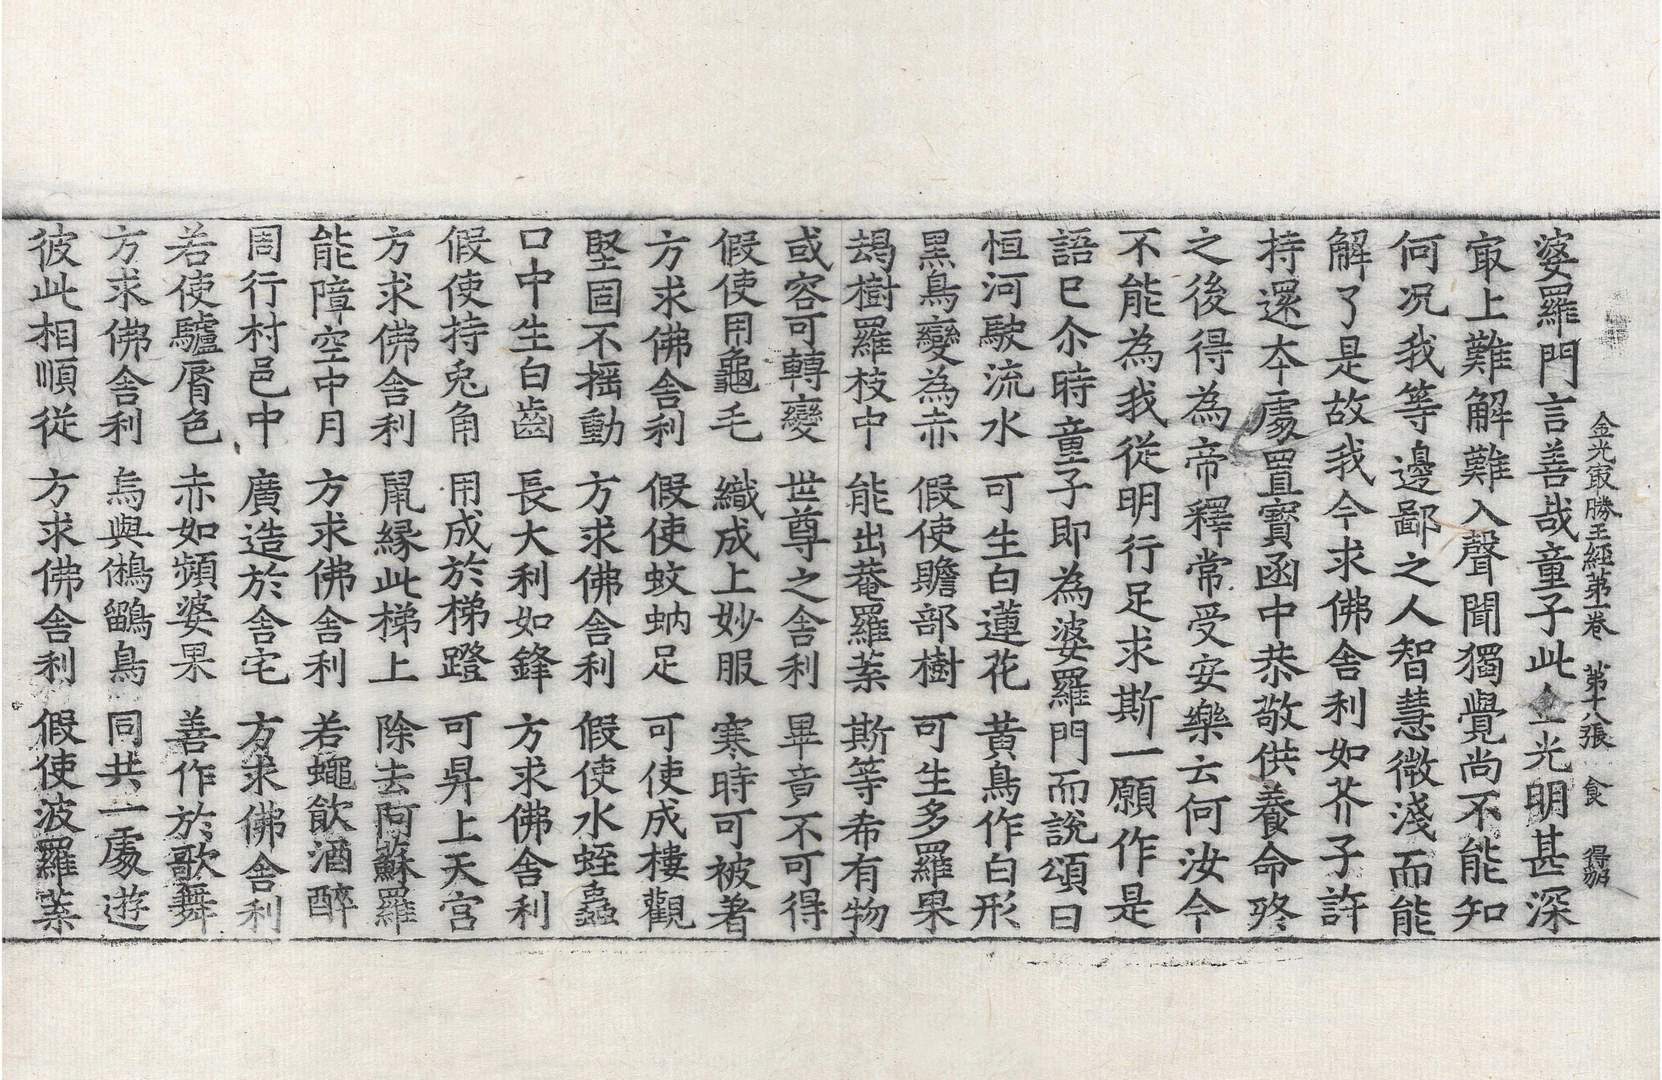 金光㝡勝王經第一卷　第十八張　食　得㔹
婆羅門言善哉童子此金光明甚深
㝡上難解難入聲聞獨覺尚不能知
何況我等邊鄙之人智慧微淺而能
解了是故我今求佛舍利如芥子許
持還本處置寶函中恭敬供養命終
之後得為帝釋常受安樂云何汝今
不能為我從明行足求斯一願作是
語已尒時童子即為婆羅門而說頌曰
恒河駛流水　可生白蓮花　黃鳥作白形
黑烏變為赤　假使贍部樹　可生多羅果
朅樹羅枝中　能出菴羅葉　斯等希有物
或容可轉變　世尊之舍利　畢竟不可得
假使用龜毛　織成上妙服　寒時可被著
方求佛舍利　假使蚊蚋足　可使成樓觀
堅固不搖動　方求佛舍利　假使水蛭蟲
口中生白齒　長大利如鋒　方求佛舍利
假使持兎角　用成於梯蹬　可昇上天宮
方求佛舍利　鼠緣此梯上　除去阿蘇羅
能障空中月　方求佛舍利　若蠅飲酒醉
周行村邑中　廣造於舍宅　方求佛舍利
若使驢脣色　赤如頻婆果　善作於歌舞
方求佛舍利　烏與鵂鶹鳥　同共一處遊
彼此相順從　方求佛舍利　假使波羅葉